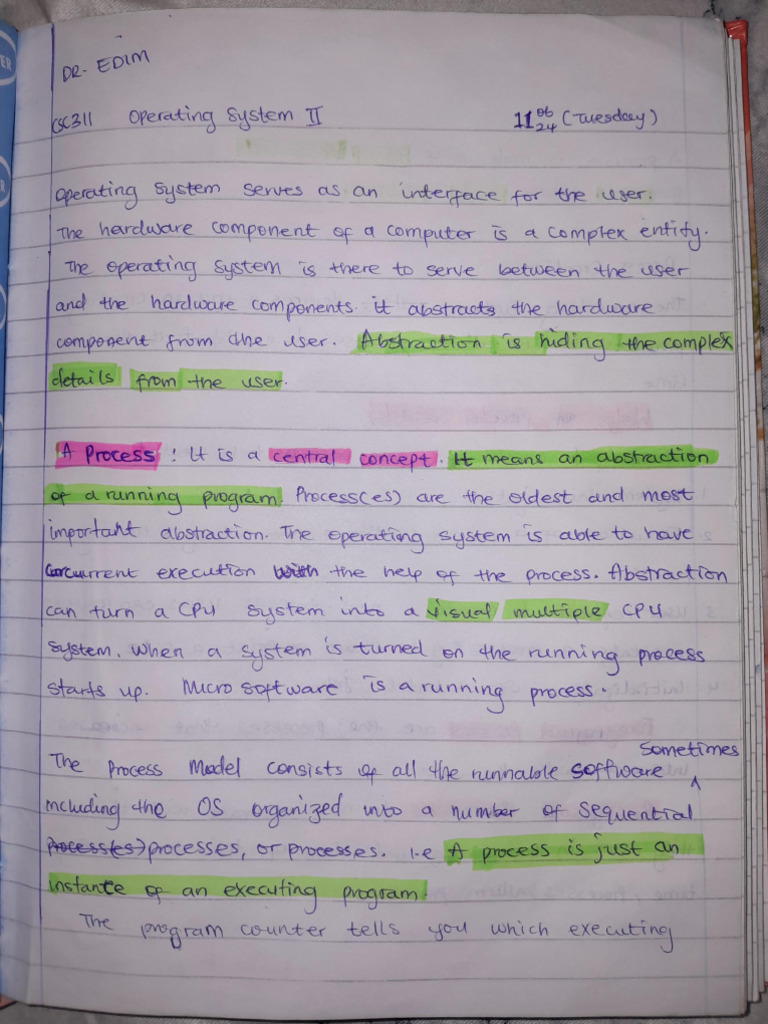 DR. EDIM
CSC311 Operating System II 11 06 24 (Tuesday)
Operating System serves as an interface for the user.
The hardware component of a computer is a complex entity.
The operating System is there to serve between the user
and the hardware components. it abstracts the hardware
component from the user. Abstraction is hiding the complex
details from the user.
A Process : It is a central concept. It means an abstraction
of a running program. Process(es) are the oldest and most
important abstraction. The operating system is able to have
concurrent execution with the help of the process. Abstraction
can turn a CPU system into a visual multiple CPU
system. When a system is turned on the running process
starts up. Micro software is a running process.
Sometimes
The Process Model consists of all the runnable software ^
including the OS organized into a number of sequential
Process(es) processes, or processes. i.e A process is just an
instance of an executing program.
The program counter tells you which executing